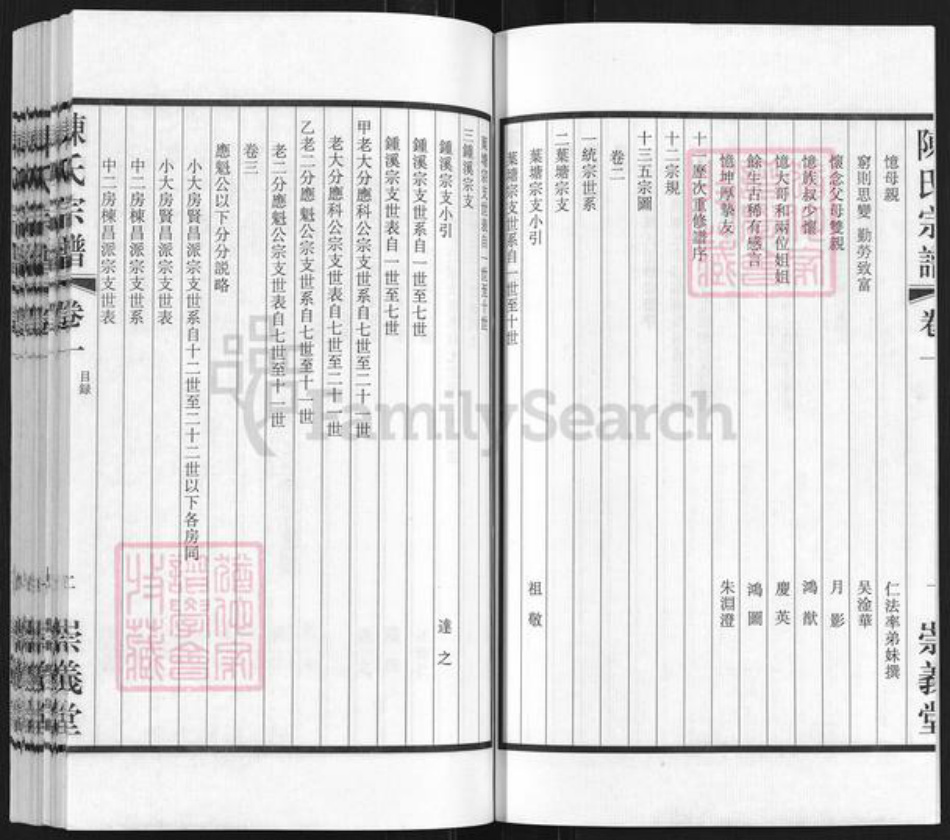 陳氏宗譜 卷一
一 崇義堂
憶母親 仁法率弟妹撰
窮則思變 勤勞致富 吴淦華
懷念父母雙親 月影
憶族叔少懷 鴻猷
憶大哥和兩位姐姐 慶英
餘生古稀有感言 鴻圖
憶坤厚摯友 朱淵澄
十一歷次重修譜序
十二宗規
十三五宗圖
卷二
一統宗世系
二葉塘宗支
葉塘宗支小引 祖敬
葉塘宗支世系自一世至十世
葉塘宗支世表自一世至十世
三鍾溪宗支
鍾溪宗支小引 達之
鍾溪宗支世系自一世至七世
鍾溪宗支世表自一世至七世
甲老大分應科公宗支世系自七世至二十一世
老大分應科公宗支世表自七世至二十一世
乙老二分應魁公宗支世系自七世至十一世
老二分應魁公宗支世表自七世至十一世
卷三
應魁公以下分分説略
小大房賢昌派宗支世系自十二世至二十二世以下各房同
小大房賢昌派宗支世表
中二房棟昌派宗支世系
中二房棟昌派宗支世表
陳氏宗譜 卷一 目録
二 崇義堂
FamilySearch